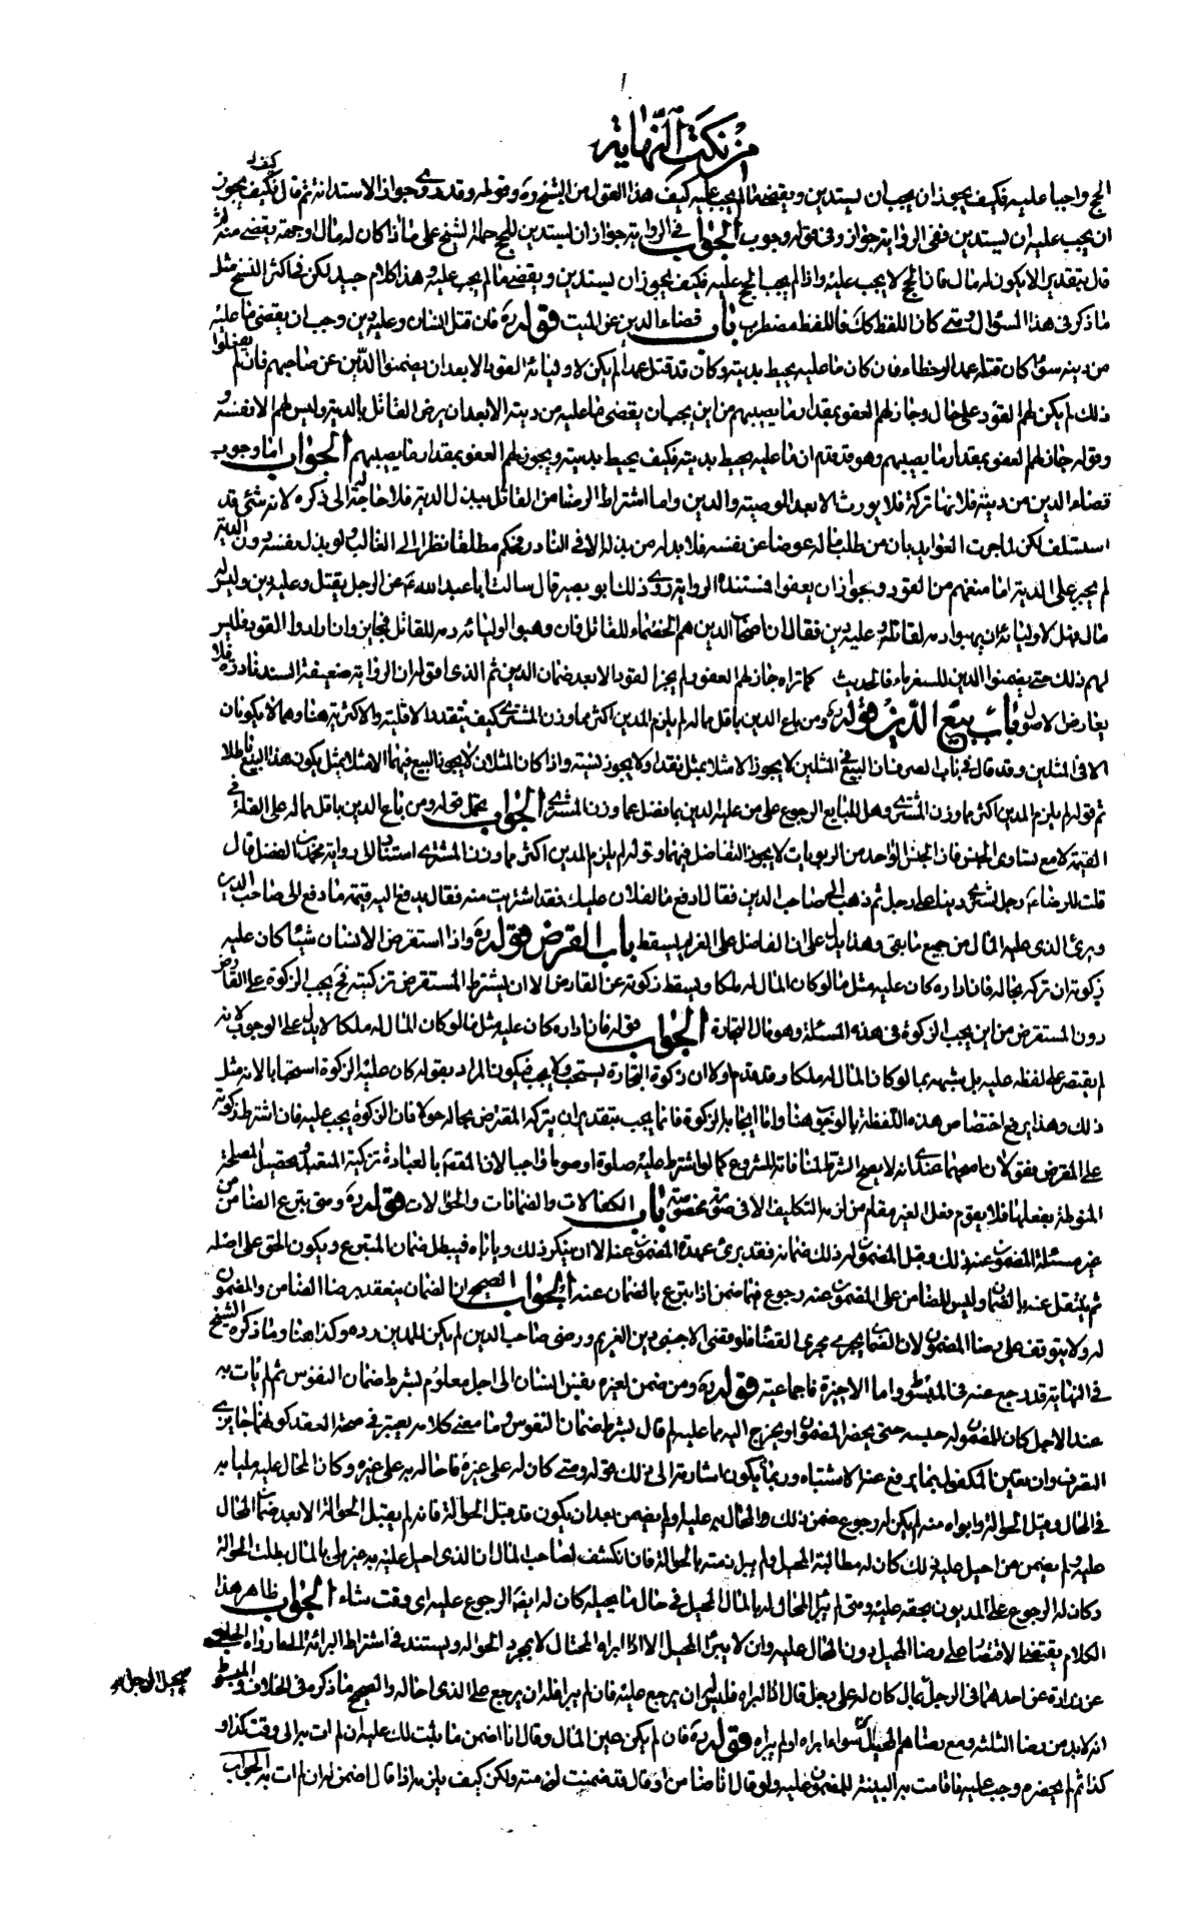 من نكت النهاية
الحج واجبا عليه فكيف يجوز ان يجب ان يستدين ويقضي ما لم يجب عليه كيف هذا القول من الشيخ ره وقوله وقد روي جواز الاستدانة ثم قال فكيف يجوز
ان يجب عليه ان يستدين ففي الرواية جواز وفي قوله وجوب الجواب في الرواية جواز ان يستدين للحج حملة الشيخ على ما اذا كان له مال او جهة يقضي منه
قال بتقدير الا يكون له مال فان الحج لا يجب عليه واذا لم يجب الحج عليه فكيف يجوز ان يستدين ويقضي ما لم يجب عليه وهذا كلام جيد لكن في اكثر النسخ مثل
ما ذكر في هذا السؤال ومتى كان اللفظ كك فاللفظ مضطرب باب قضاء الدين عن الميت قوله ره فان قتل انسان وعليه دين وجب ان يقضى ما عليه
من ديته سواء كان قتله عمدا او خطاء فان كان ما عليه يحيط بديته وكان قد قتل عمدا لم يكن لاوليائه القود الا بعد ان يضمنوا الدين عن صاحبهم فان لم يفعلوا
ذلك لم يكن لهم القود على حال وجاز لهم العفو بمقدار ما يصيبهم من اين يجب ان يقضى ما عليه من ديته الا بعد ان يرضى القاتل بالدية وليس لهم الا نفسه و
وقوله جاز لهم العفو بمقدار ما يصيبهم وهو قد قدم ان ما عليه يحيط بديته فكيف يحيط بديته ويجوز لهم العفو بمقدار ما يصيبهم الجواب اما وجوب
قضاء الدين من ديته فلانها تركة فلا يورث الا بعد الوصية والدين واما اشتراط الرضا من القاتل ببذل الدية فلا حاجة الى ذكره لانه شئ قد
استسلف لكن لما جرت العوايد بان من طلب ماله عوضا عن نفسه فلا بد له من بذله الا في النادر فحكم مطلقا نظرا الى الغالب ولو بذل نفسه دون الدية
لم يجبر على الدية اما منعهم من القود وبجواز ان يعفوا فمستنده الرواية روى ذلك ابو بصير قال سالت ابا عبد الله ع عن الرجل يقتل وعليه دين وليس له
مال فهل لاوليائه ان يهبوا دمه لقاتله وعليه دين فقال ان اصحاب الدين هم الخصماء للقاتل فان وهبوا اوليائه دمه للقاتل فجايز وان ارادوا القود فليس
لهم ذلك حتى يضمنوا الدين للغرماء فالحديث كما تراه جاز لهم العفو ولم يجز القود الا بعد ضمان الدين ثم الذي اقوله ان الرواية ضعيفة السند نادرة فلا
يعارض الاصول باب بيع الديون قوله ره ومن باع الدين باقل مما له لم يلزم المدين اكثر مما وزن المشتري كيف تتقدر الاقلية والاكثرية هنا وهما لا يكونان
الا في المثلين وقد قال في باب الصرف ان البيع في المثلين لا يجوز الا مثلا بمثل نقدا ولا يجوز نسية واذا كان المثلان لا يجوز البيع فيهما الا مثلا بمثل يكون هذا البيع باطلا
ثم قوله لم يلزم المدين اكثر مما وزن المشتري وهل للبايع الرجوع على من عليه الدين بما فضل عما وزن المشتري الجواب يحتمل قوله ومن باع الدين باقل مما له على القلة في
القيمة لا مع تساوي الجنس فان الجنس الواحد من الربويات لا يجوز التفاضل فيهما وقوله لم يلزم المدين اكثر مما وزن المشتري استنادا الى رواية محمد بن الفضل قال
قلت للرضاء ع رجل اشترى دينا على رجل ثم ذهب الى صاحب الدين فقال ادفع ما لفلان عليك فقد اشتريت منه فقال يدفع اليه قيمة ما دفع الى صاحب الدين
وبرئ الذي عليه المال من جميع ما بقي وهذا يدل على ان الفاضل على الغرام يسقط باب القرض قوله ره واذا استقرض الانسان شيئا كان عليه
زكوته ان تركه بحاله فان اداره كان عليه مثل ما لو كان المال له ملكا ويسقط زكوته عن القارض الا ان يشترط المستقرض تزكيته فح يجب الزكوة على القارض
دون المستقرض من اين يجب الزكوة في هذه المسئلة وهو مال التجارة الجواب قوله فان اداره كان عليه مثل ما لو كان المال له ملكا لا يدل على الوجوب لانه
لم يقتصر على لفظه عليه بل يشبهه بما لو كان المال له ملكا وقد قدم اولا ان زكوة التجارة يستحب ولا يجب فيكون المراد بقوله كان عليه الزكوة استحبابا لانه مثل
ذلك وهذا يرفع اختصاص هذه اللفظة بالوجوب هنا واما ايجابه الزكوة فانما يجب بتقدير ان يتركه المقترض بحاله حولا فان الزكوة يجب عليه فان اشترط زكوته
على المقرض فقولان اصحهما عندي انه لا يصح الشرط لمنافاته المشروع كما لو اشترط عليه صلوة او صوما واجبا لان المقصد بالعبادة تزكية المتعبد وتحصيل المصلحة
المنوطة بفعلها فلا يقوم فعل الغير مقام من لزمه التكليف الا في صور مخصوصة باب الكفالات والضمانات والحوالات قوله ره ومتى تبرع الضامن من
غير مسئلة المضمون عنه ذلك وقبل المضمون له ذلك ضمانه فقد برئ عهدة المضمون عنه الا ان ينكر ذلك وياباه فيبطل ضمان المتبرع ويكون الحق على اصله
ثم ينتقل عنه بالضمان وليس للضامن على المضمون عنه رجوع فيما ضمن اذا تبرع بالضمان عنه الجواب الصحيح ان الضمان ينعقد برضا الضامن والمضمون
له ولا يتوقف على رضا المضمون لان الضمان يجري مجرى القضاء فلو قضى الاجنبي دين الغريم ورضي صاحب الدين لم يكن للمدين رده وكذا هنا وما ذكره الشيخ
في النهاية قد رجع عنه في المبسوط واما الاخيرة فاجماعية قوله ره ومن ضمن لغيره نفس انسان الى اجل معلوم بشرط ضمان النفوس ثم لم يات به
عند الاجل كان للمضمون له حبسه حتى يحضر المضمون او يخرج اليه مما عليه لم قال بشرط ضمان النفوس وما معنى كلامه يعتبر في صحة العقد كونهما جايزي
التصرف وان يعين المكفول بما يرفع عنه الاشتباه وربما يكون اشارته الى ذلك قوله ومتى كان له على غيره فاحاله به على غيره وكان المحال عليه مليا به
في الحال وقبل الحوالة وابراه منه لم يكن له رجوع ضمن ذلك والمحال به عليه او لم يضمن بعد ان يكون قد قبل الحوالة فانه لم يقبل الحوالة الا بعد ضمان المحال
عليه ولم يضمن من احيل عليه ذلك كان له مطالبة المحيل ولم يبرا ذمته بالحوالة فان انكشف لصاحب المال ان الذي احيل عليه به غير ملي بالمال بطلت الحوالة
وكان له الرجوع على المديون بحقه عليه ومتى لم يبرا المحال له بالمال المحيل في حال ما يحيله كان له ايضا الرجوع عليه اي وقت شاء الجواب ظاهر هذا
الكلام يقتضي الاقتصار على رضا المحيل دون المحال عليه وان لا يبرأ المحيل الا اذا ابراه المحتال لا بمجرد الحوالة ويستند في اشتراط البرائة الى ما رواه الحلبي
عن زرارة عن احدهما في الرجل يحيل الرجل بمال كان له على رجل قال اذا ابراه فليس له ان يرجع عليه فان لم يبراه فله ان يرجع على الذي احاله والصحيح ما ذكر في الخلاف والمبسوط
انه لا بد من رضا الثلثة ومع رضاهم المحيل سواء ابراه او لم يبراه قوله ره فان لم يكن عين المال وقال انا اضمن ما يثبت لك عليه ان لم ات به الى وقت كذا و
كذا ثم لم يحضره وجب عليه ما قامت به البينة للمضمون عليه ولو قال انا ضامن او قال قد ضمنت لزمته ولكن كيف يلزمه اذا قال اضمن له ان لم ات به الجواب